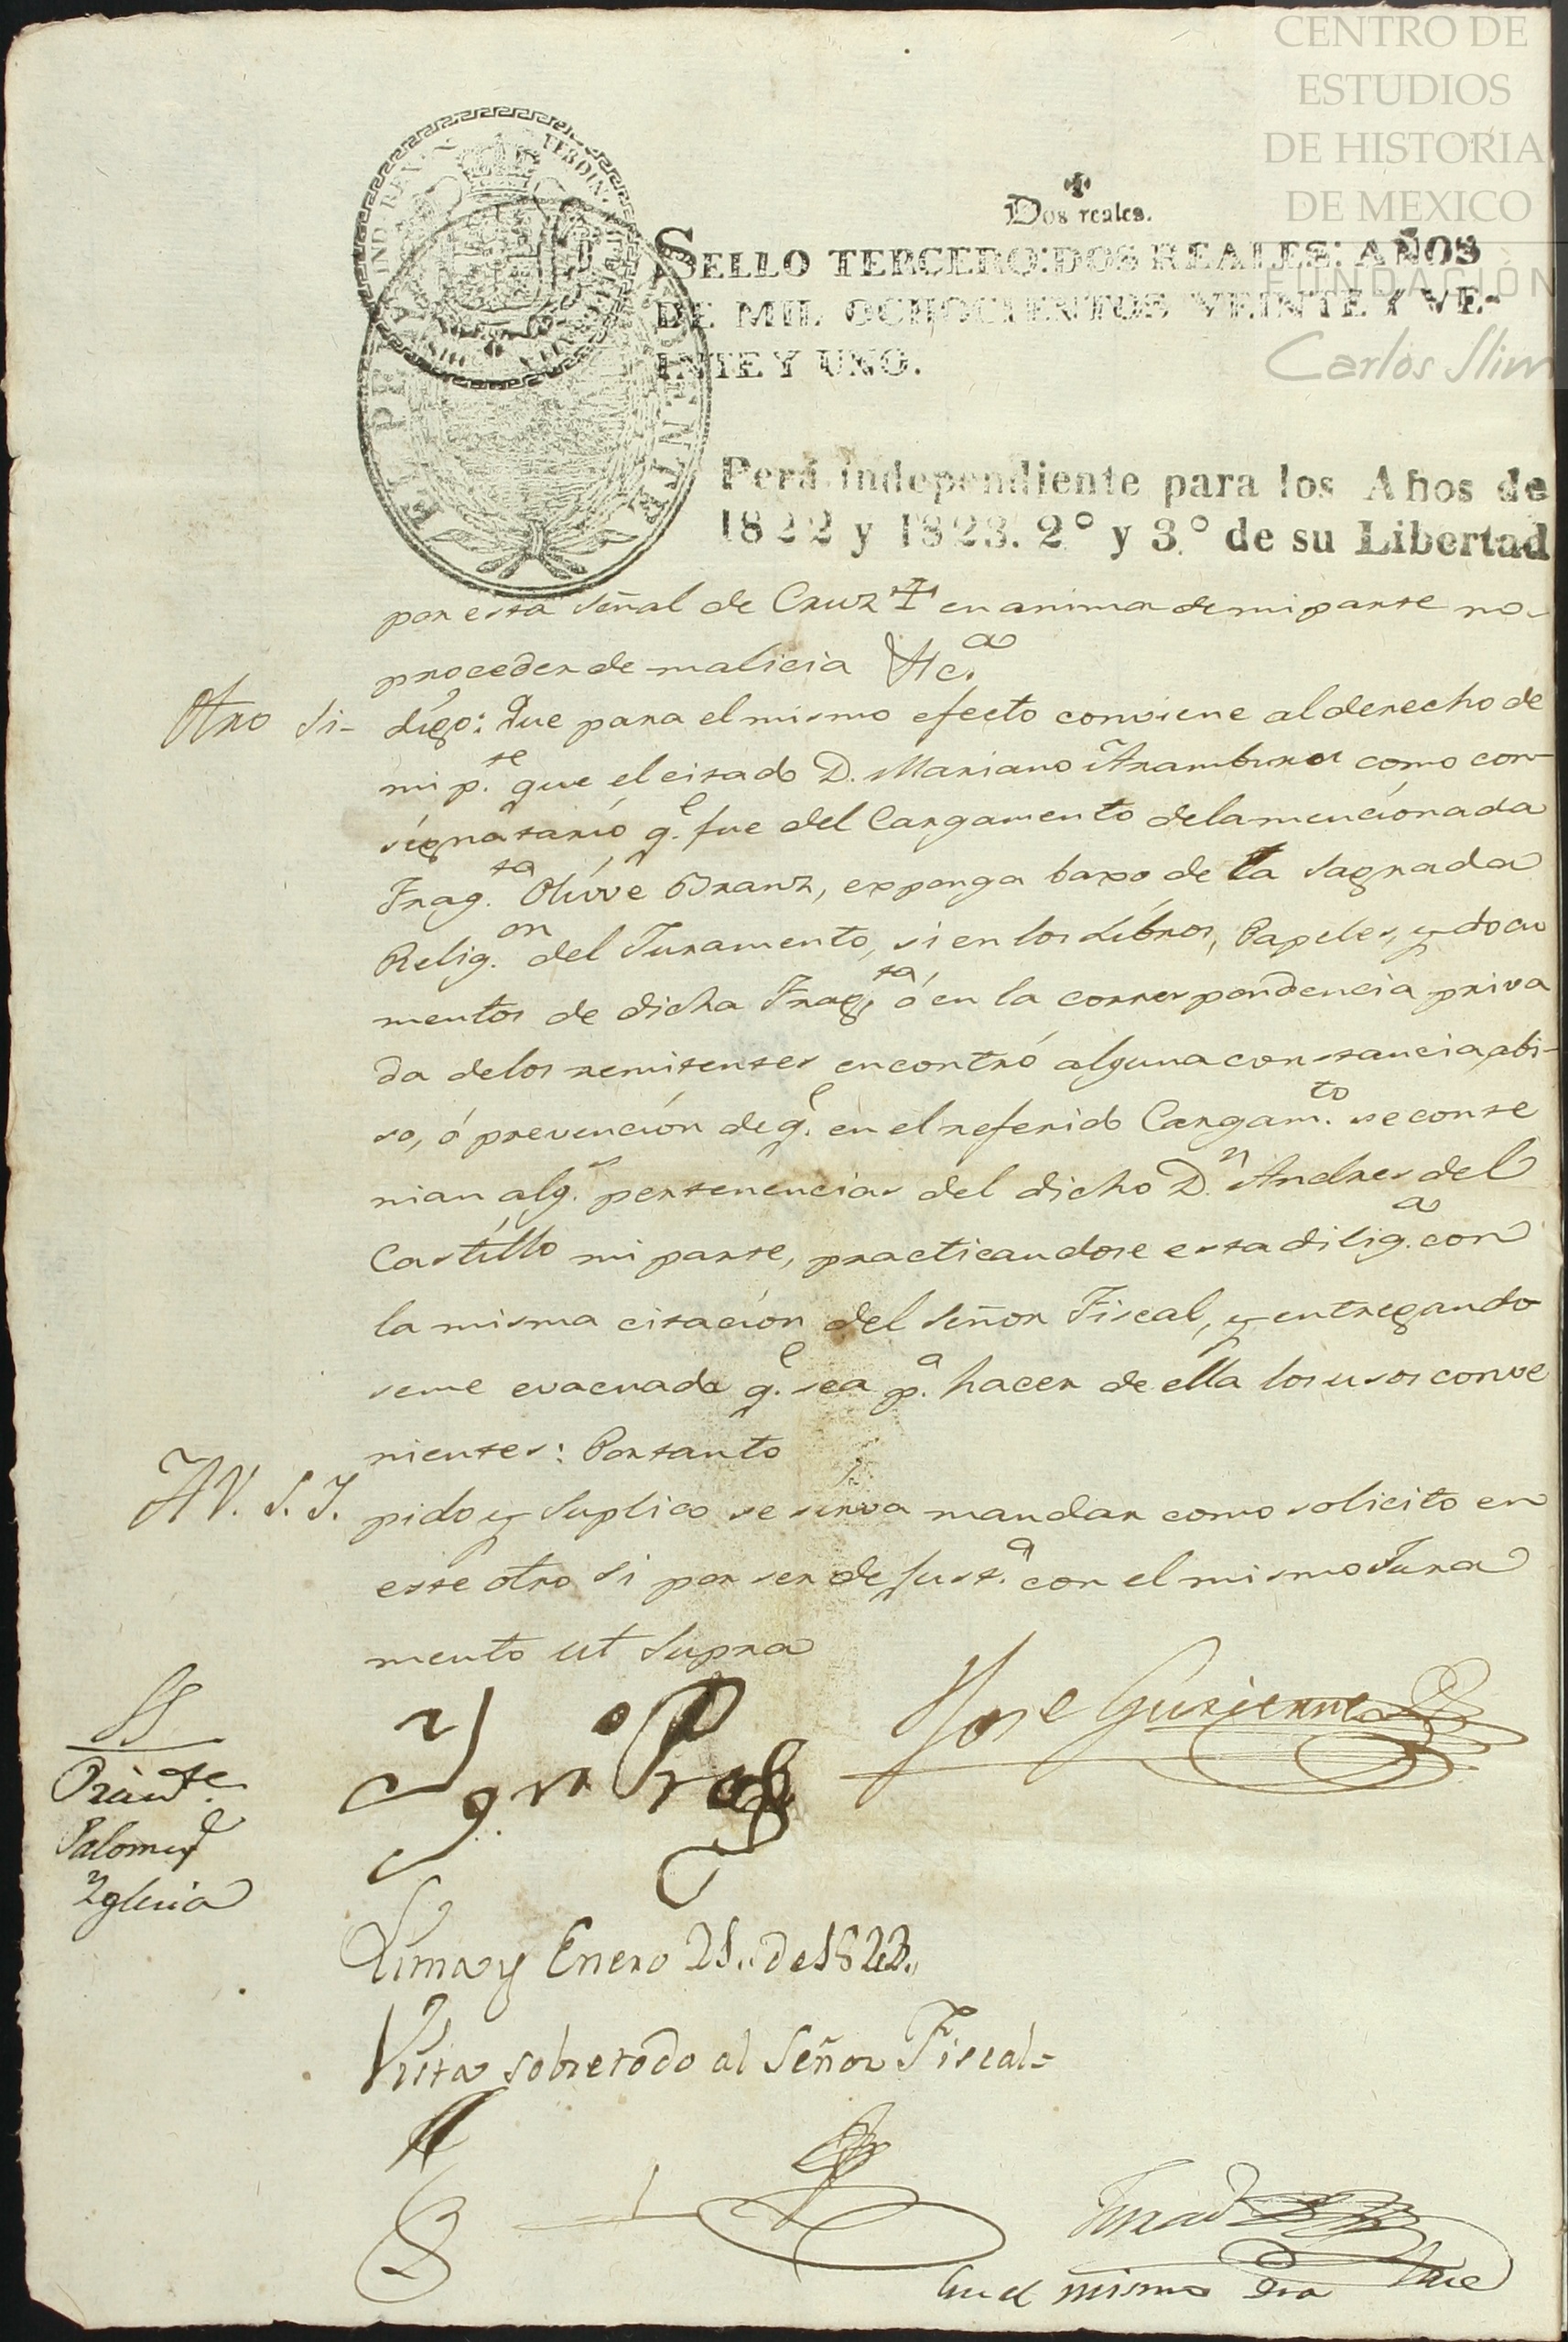 CENTRO DE
ESTUDIOS
DE HISTORIA
DE MEXICO
FUNDACIÓN
Carlos Slim
Dos reales.
SELLO TERCERO: DOS REALES: AÑOS
DE MIL OCHOCIENTOS VEINTE Y VE-
INTE Y UNO.
Perú independiente para los Años de
1822 y 1823. 2.º y 3.º de su Libertad
por esta Señal de Cruz ✝ en anima de mi parte no
proceder de malicia &c.ª
Otro Si- digo: Que para el mismo efecto conviene al derecho de
mi p.te que el citado D. Mariano Aramburu como con-
signatario q.e fue del Cargamento dela mencionada
Frag.ta Olive Branz, exponga baxo de la Sagrada
Relig.on del Juramento, si en los Libros, Papeles, y docu
mentos de dicha Frag.ta, ó en la correspondencia priva
da delos remitentes encontró alguna constancia, abi-
so, ó prevención de q.e en el referido Cargam.to se conte
nian alg.s pertenencias del dicho D.n Andres del
Castillo mi parte, practicandose esta dilig.a con
la misma citación del Señor Fiscal, y entregando
seme evacuada q.e sea p.a hacer de ella los usos conve
nientes: Portanto
A V. S. I. pido y Suplico se sirva mandar como solicito en
este otro Si por ser de Just.a con el mismo Jura
mento ut Supra
Jose Gutierrez
SS
Palom.
Yglecia
Lima y Enero 21,, de 1823,,
Vista sobre todo al Señor Fiscal=
En el mismo dia hice